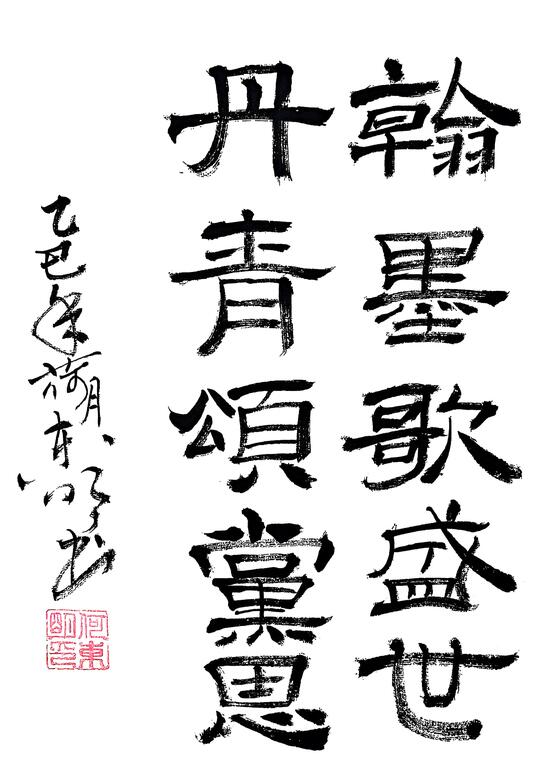 翰墨歌盛世
丹青頌黨恩
乙巳年荷月東明书
何東明印